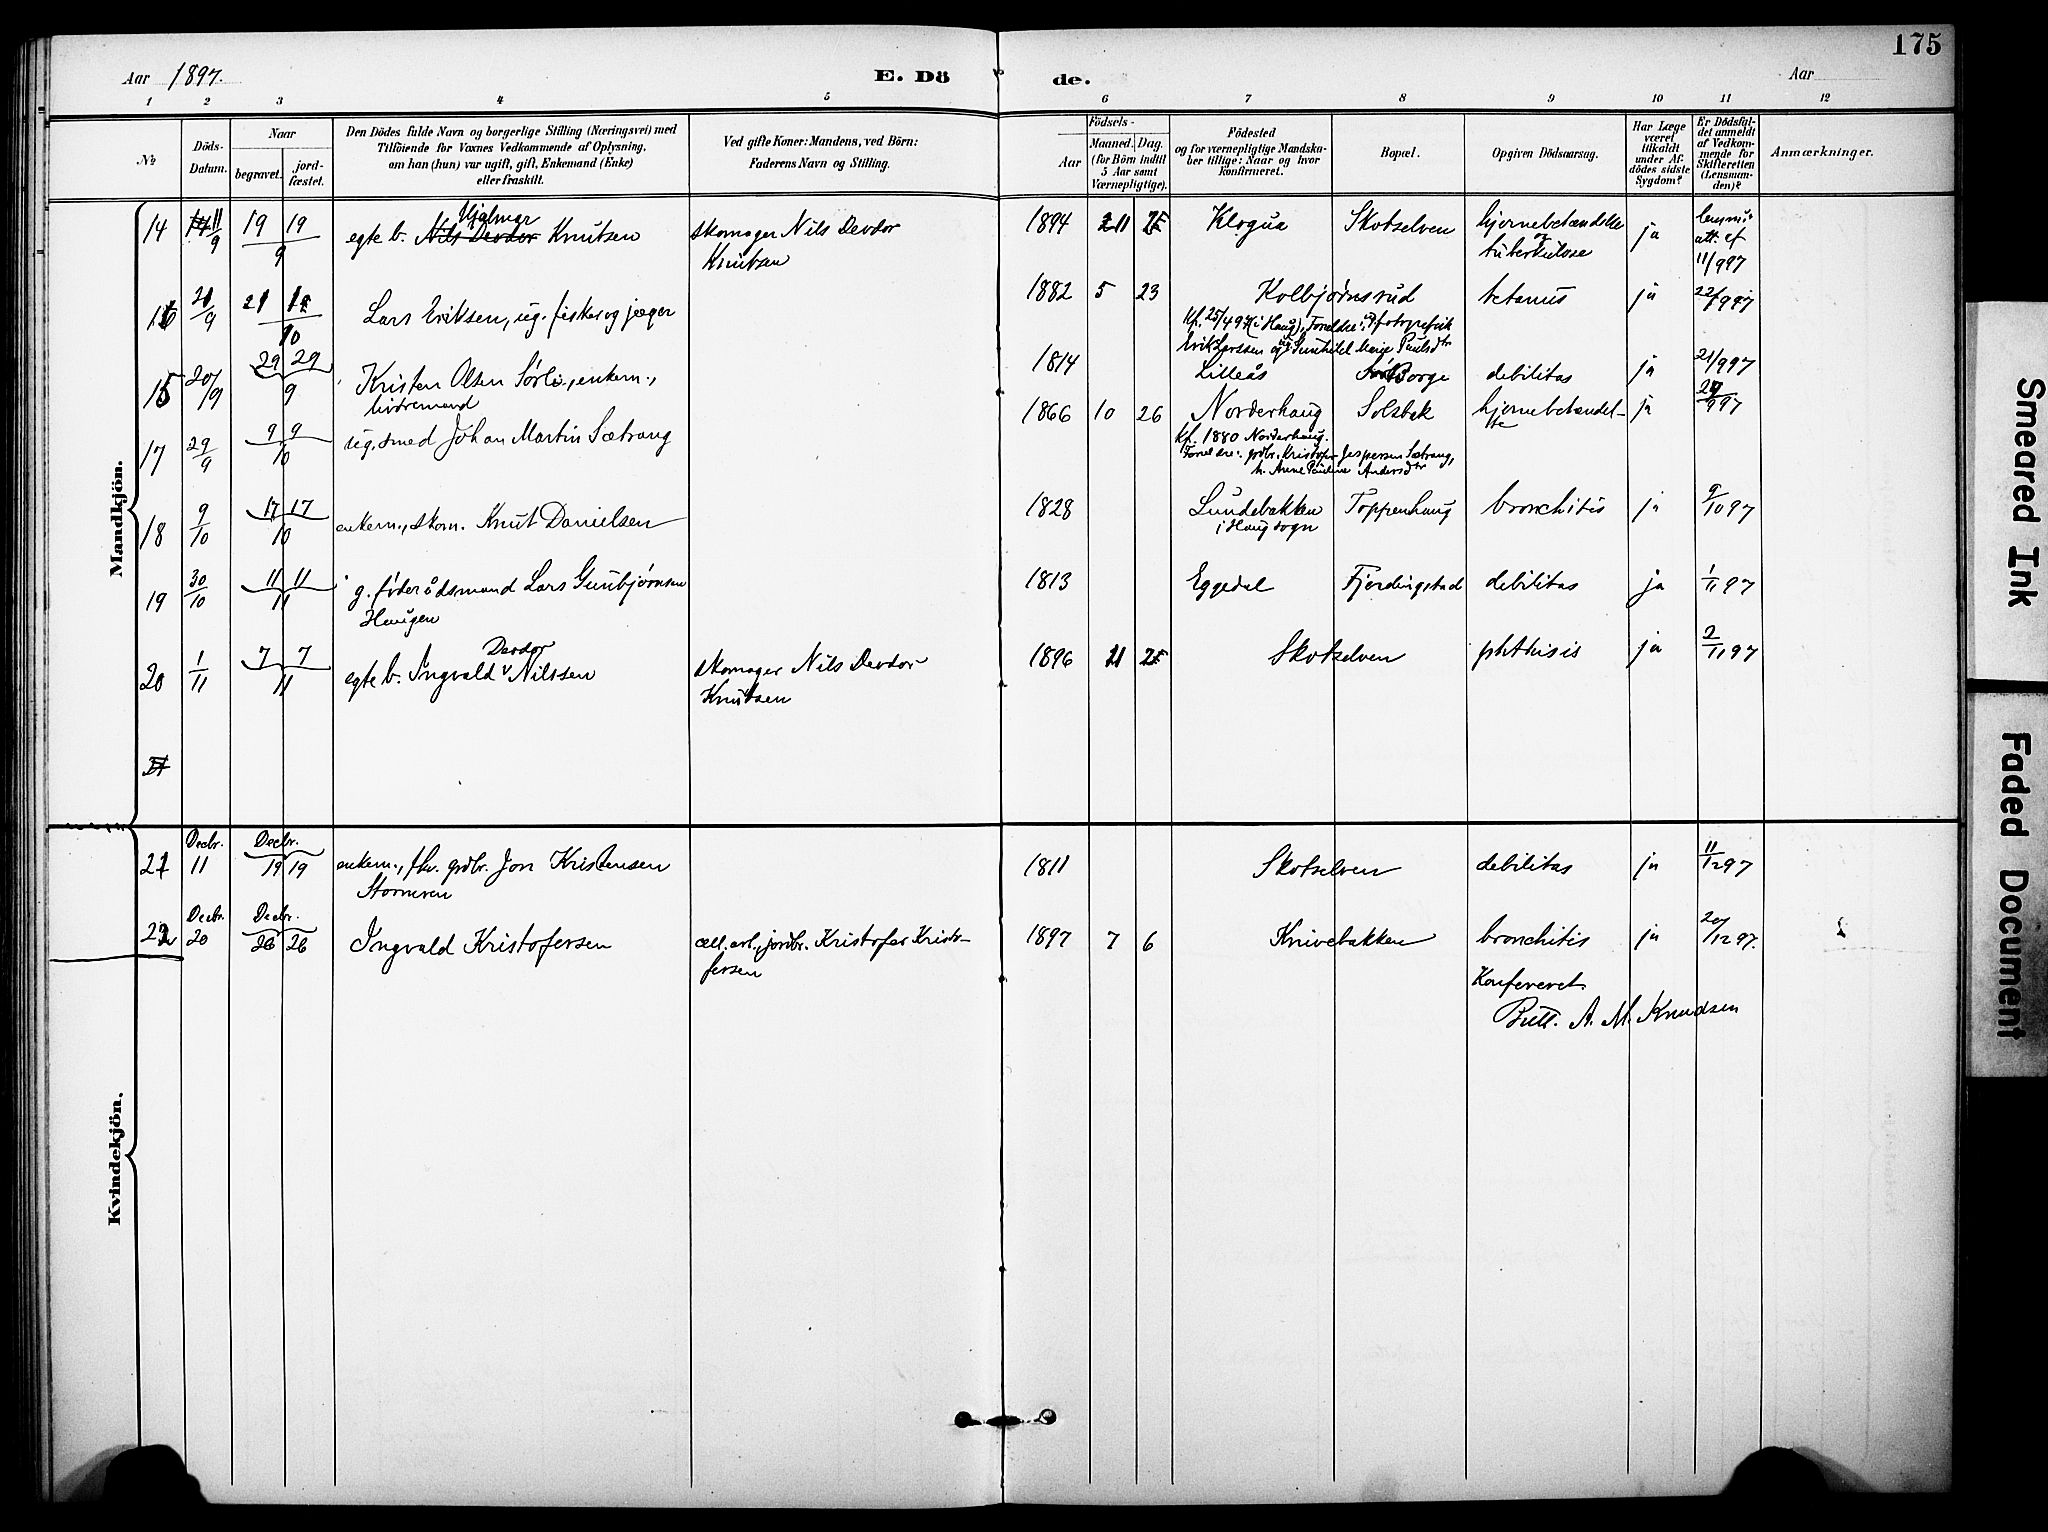 175
Aar 1897.
E. Dö
de.
Aar
1 2 3 4 5 6 7 8 9 10 11 12
No
Döds-
Datum.
Naar
begravet.
jord-
fæstet.
Den Dödes fulde Navn og borgerlige Stilling (Næringsvei) med
Tilföiende for Voxnes Vedkommende af Oplysning,
om han (hun) var ugift, gift, Enkemand (Enke)
eller fraskilt.
Ved gifte Koner: Mandens, ved Börn:
Faderens Navn og Stilling.
Födsels-
Aar
Maaned. Dag.
(for Börn indtil
5 Aar samt
Værnepligtige).
Födested
og for værnepligtige Mandska-
ber tillige: Naar og hvor
konfirmeret.
Bopæl.
Opgiven Dödsaarsag.
Har Læge
været
tilkaldt
under Af-
dödes sidste
Sygdom?
Er Dödsfal-
det anmeldt
af Vedkom-
mende for
Skifteretten
(Lensman-
den)?
Anmærkninger.
Mandkjön.
14 11/9 19 19/9 egte b. Nils Devdor Hjalmar Knutsen skomager Nils Devdor
Knutsen
1894 Klogua Skotselven hjernebetændelse
og
tuberkulose ja
att. ef
11/997
16 21/9 21 /10 Lars Eriksen, ug. fisker og jæger 1882 5 23 Kolbjørnsrud tetanus ja 22/997
Erik Larssen og Gunhild Marie Paulsdtr
15 20/9 29 29/9 Kristen Olsen Sørli, enkem.,
1814 Lilleås Borge debilitas ja 21/997
17 29/9 9 9/10 ug. smed Johan Martin Sætrang 1866 10 26 Norderhaug Solsbak hjernebetændel-
se ja 29/997
Kf. 1880 Norderhaug.
Foreldre: grdbr. Kristofer Jespersen Sætrang,
h. Anne Pauline Andersdtr
18 9/10 17 17/10 enkem., skom. Knut Danielsen 1828 Lundebakken
i Haug sogn Toppenhaug bronchitis ja 9/10 97
19 30/10 11 11/11 g. føderådsmand Lars Gunbjørnsen
Haugen 1813 Eggedal Fjerdingstad debilitas ja 1/11 97
20 1/11 7 7/11 egte b. Ingvald Devdor Nilssen skomager Nils Devdor
Knutsen 1896 Skotselven phthisis ja 2/11 97
Kvindekjön.
21 Decbr. 11 Decbr. 19 19 enkem., fhv. grdbr. Jon Kristensen
Stormoen 1811 Skotselven debilitas ja 11/12 97
22 Decbr. 20 Decbr. 26 26 Ingvald Kristofersen jordbr. Kristofer Kristo-
fersen 1897 7 6 Knivebakken bronchitis ja 20/12 97.
Konfereret
Bull. A. M. Knudsen
Smeared Ink
Faded Document